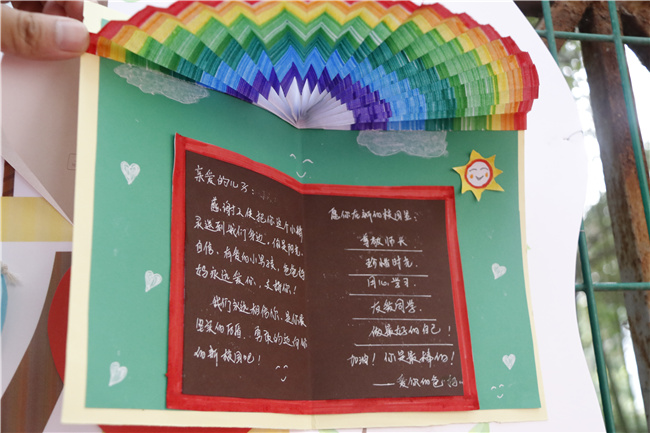 亲爱的儿子：
感谢上天把你这个小精
灵送到我们身边，你是阳光、
自信、有爱的小男孩，爸爸妈
妈永远爱你，支持你！
我们永远相信你，是你最
坚强的后盾，勇敢的迈向你
的新校园吧！
愿你在新的校园里：
尊敬师长
珍惜时光
用心学习
友爱同学
做最好的自己！
加油！你是最棒的！
——爱你的爸妈